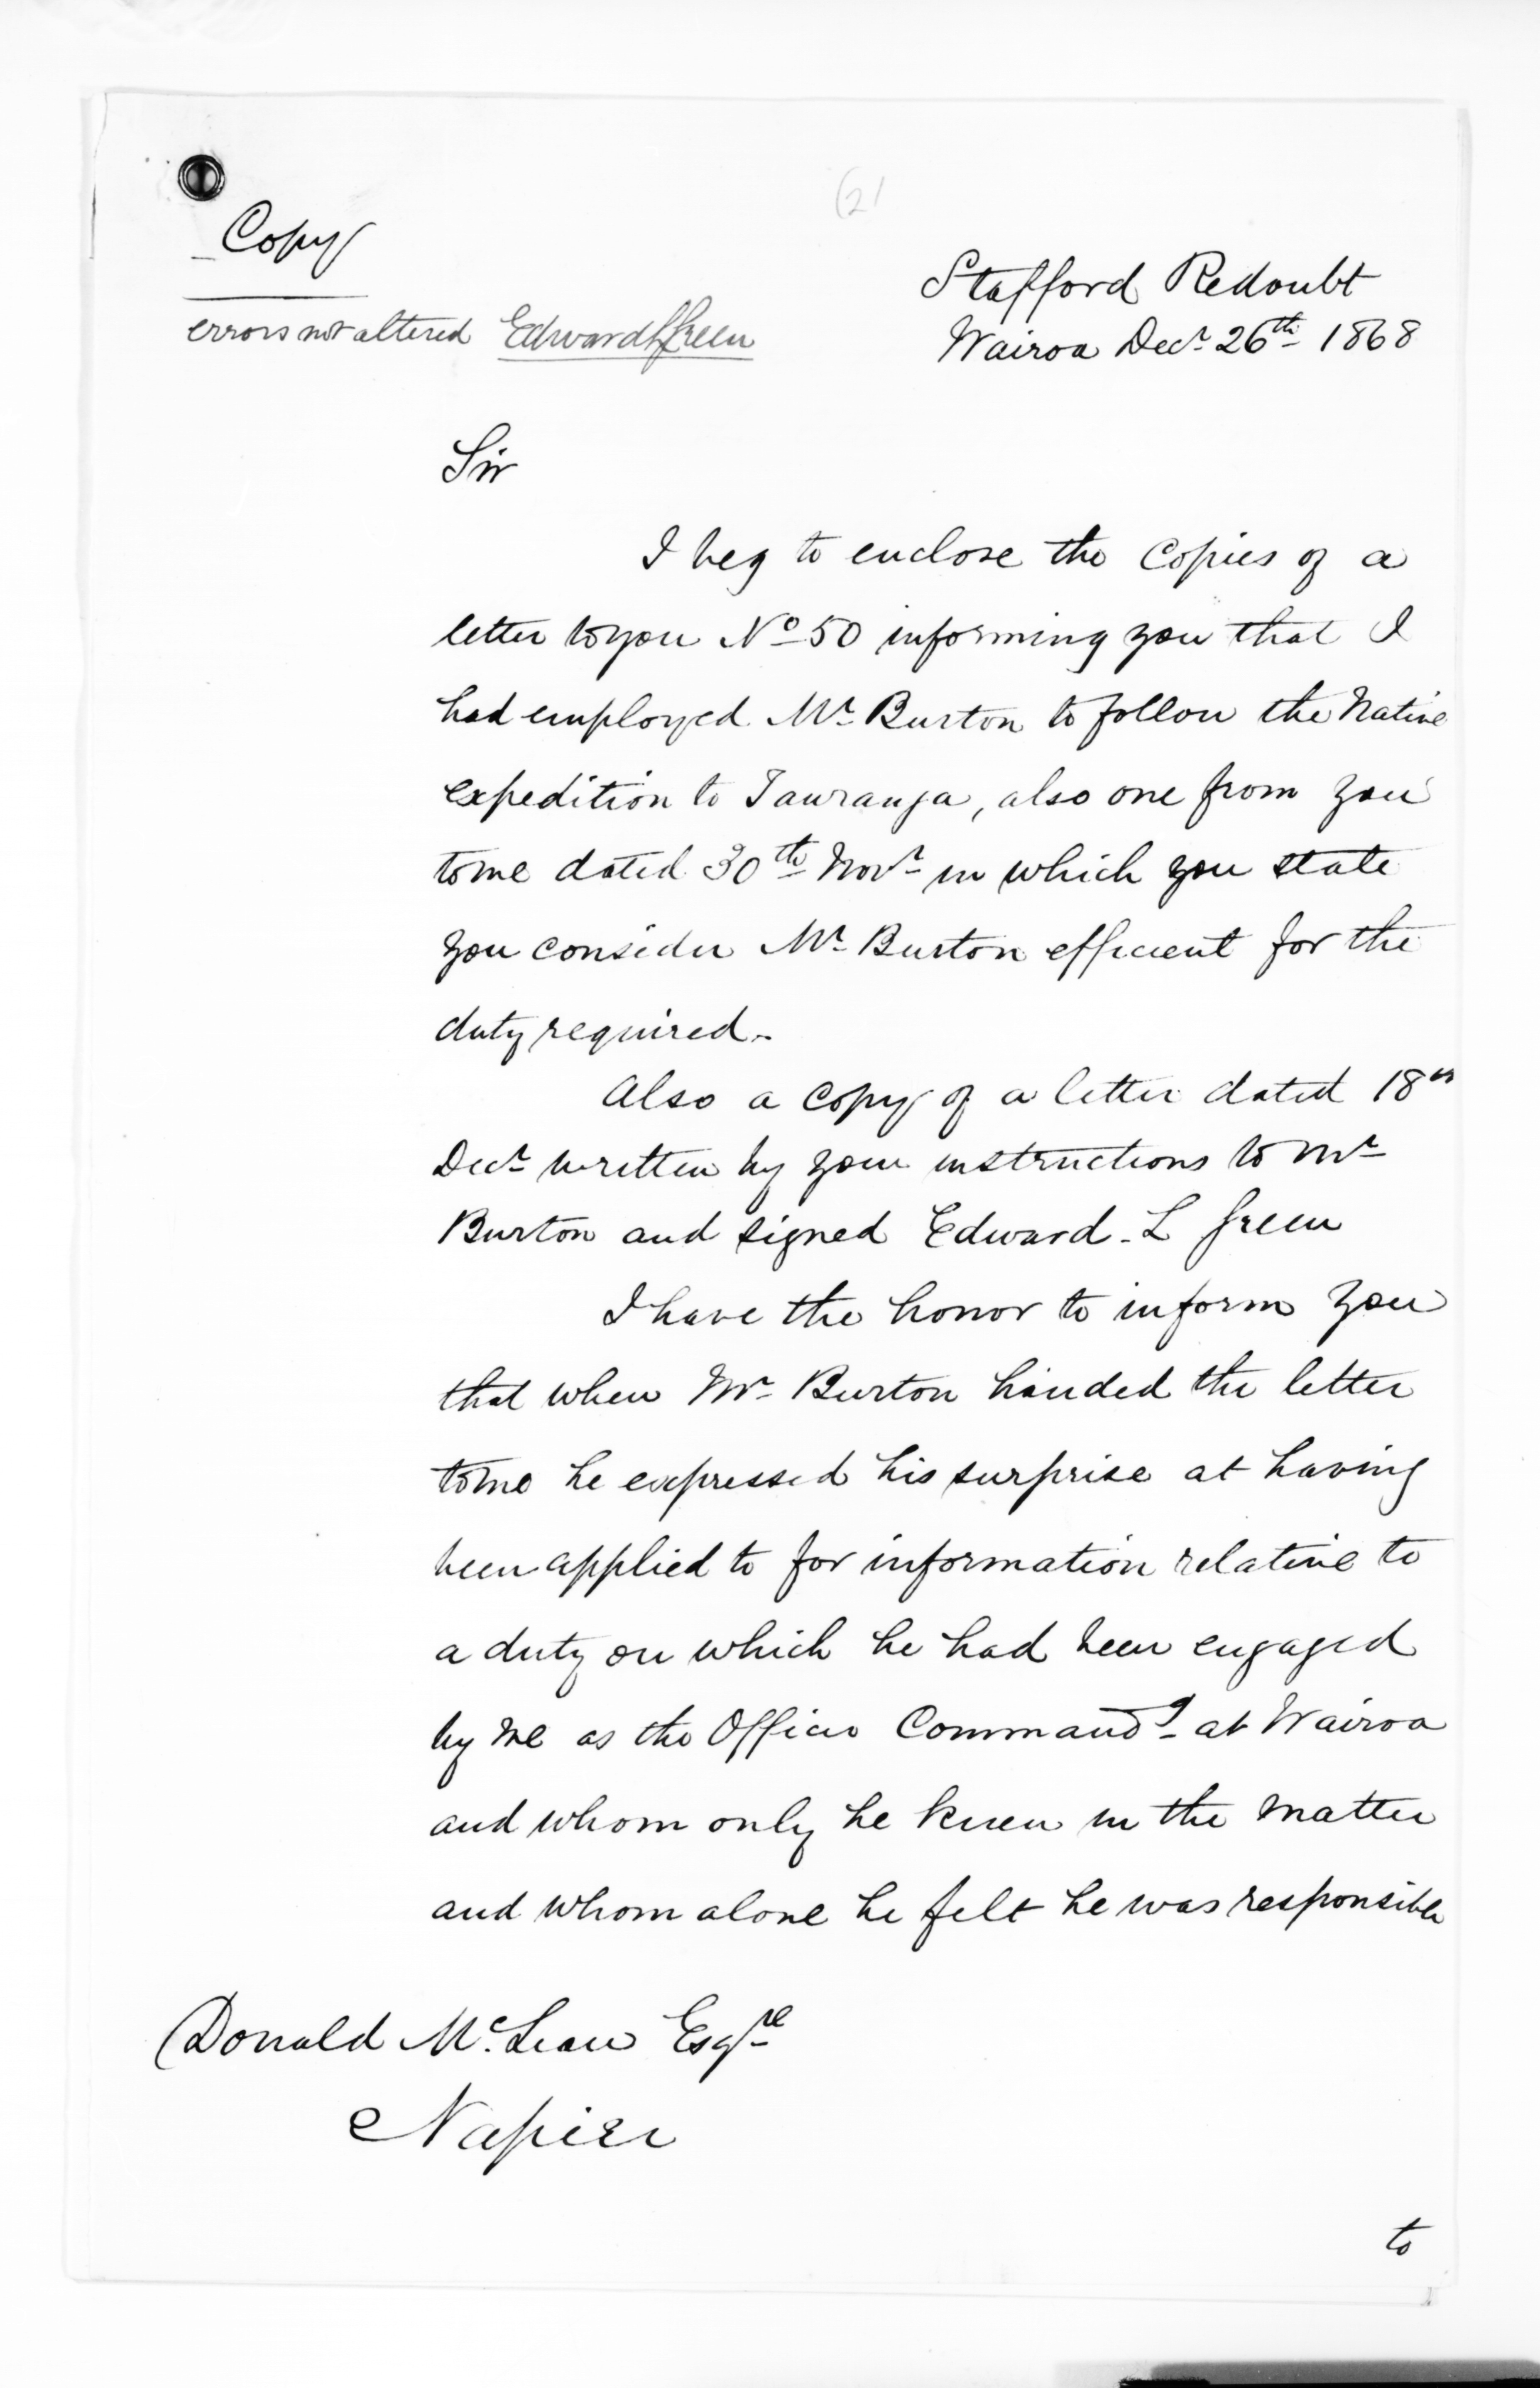 (21
Copy
errors not altered Edward L Green
Stafford Redoubt
Wairoa Decr 26th 1868
Sir
I beg to enclose the Copies of a
letter to you No 50 informing you that I
had employed Mr Burton to follow the Native
expedition to Tauranga, also one from you
to me dated 30th Novr in which you state
you consider Mr Burton efficient for the
duty required.
Also a copy of a letter dated 18th
Decr written by your instructions to Mr
Burton and signed Edward. L Green
I have the honor to inform you
that when Mr Burton handed the letter
to me he expressed his surprise at having
been applied to for information relative to
a duty on which he had been engaged
by me as the Officer Commandg at Wairoa
and whom only he knew in the matter
and whom alone he felt he was responsible
Donald McLean Esqre
Napier
to